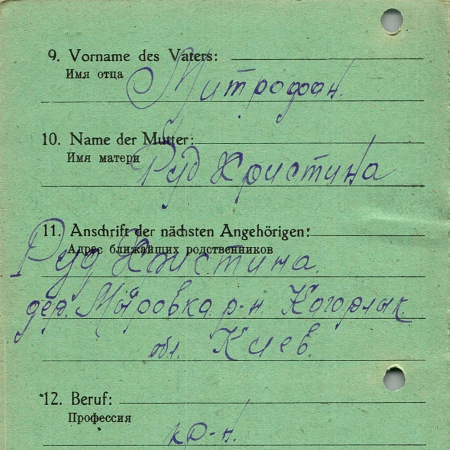 9. Vorname des Vaters:
Имя отца
Митрофан.
10. Name der Mutter:
Имя матери
Руд Христина
11. Anschrift der nächsten Angehörigen:
Адрес ближайших родственников
Руд Христина.
дер. Мировка р-н. Кагорлык
обл. Киев.
12. Beruf:
Профессия
кр-н.